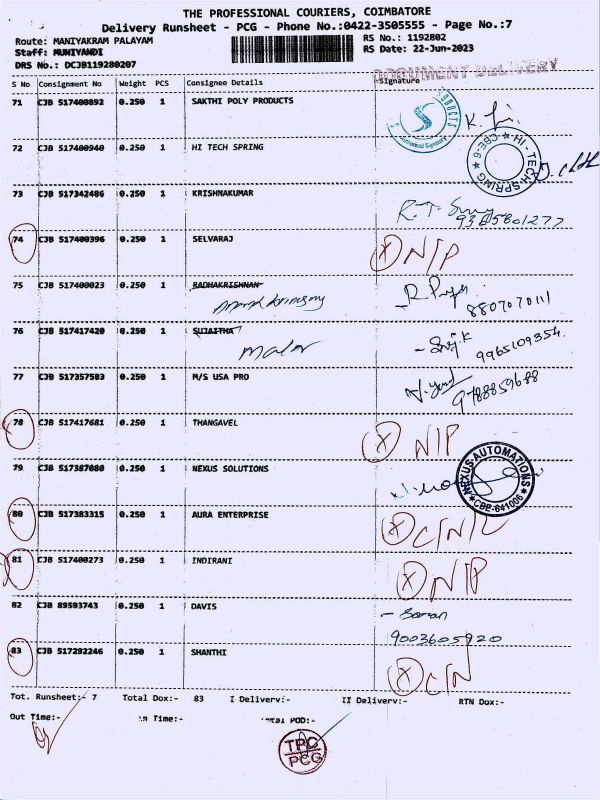 THE PROFESSIONAL COURIERS, COIMBATORE
Delivery Runsheet - PCG - Phone No.:0422-3505555 - Page No.:7
Route: MANIYAKRAM PALAYAM RS No.: 1192802
Staff: MUNIYANDI RS Date: 22-Jun-2023
DRS No.: DCJB119280207
DOCUMENT DELIVERY
S No Consignment No Weight PCS Consignee Details Signature
71 CJB 517400892 0.250 1 SAKTHI POLY PRODUCTS
72 CJB 517400940 0.250 1 HI TECH SPRING
HI-TECH SPRING CBE-6
73 CJB 517342486 0.250 1 KRISHNAKUMAR
74 CJB 517400396 0.250 1 SELVARAJ X N/P
75 CJB 517400023 0.250 1 RADHAKRISHNAN
8807070111
76 CJB 517417420 0.250 1 SUJAITHA
Malar 9965109354
77 CJB 517357503 0.250 1 M/S USA PRO
9788859688
78 CJB 517417681 0.250 1 THANGAVEL X N/P
79 CJB 517387080 0.250 1 NEXUS SOLUTIONS
NEXUS AUTOMATIONS CBE-641006
80 CJB 517383315 0.250 1 AURA ENTERPRISE X
81 CJB 517400273 0.250 1 INDIRANI X N/P
82 CJB 89593743 0.250 1 DAVIS
9003605920
83 CJB 517292246 0.250 1 SHANTHI X C/N
Tot. Runsheet:- 7 Total Dox:- 83 I Delivery:- II Delivery:- RTN Dox:-
Out Time:- In Time:- Total POD:-
TPC
PCG